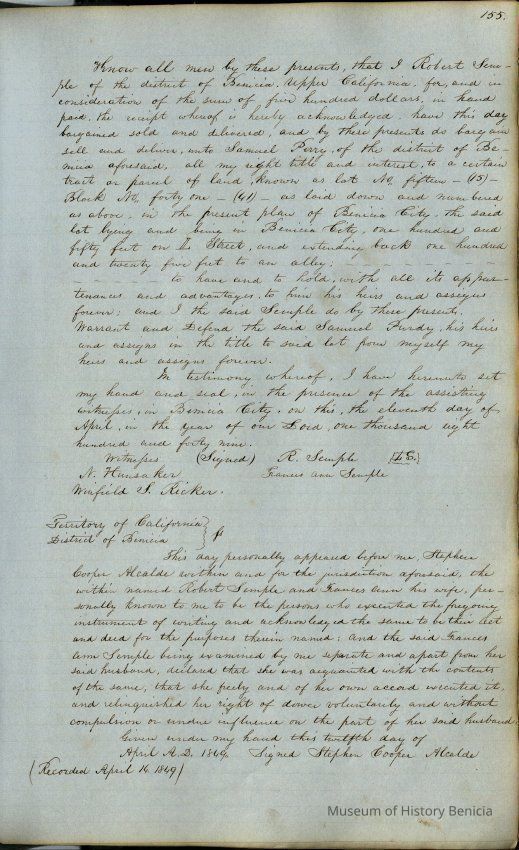 155.
Know all men by these presents, that I Robert Sem-
ple of the district of Benicia, Upper California, for, and in
consideration of the sum of five hundred dollars, in hand
paid, the receipt whereof is hereby acknowledged, have this day
bargained sold and delivered, and by these presents do bargain
sell and deliver, unto Samuel Perry, of the district of Be-
nicia aforesaid, all my right title and interest, to a certain
tract or parcel of land, known as lot No. fifteen - (15) -
Block No. forty one - (41) - as laid down and numbered
as above, in the present plan of Benicia City, the said
lot lying and being in Benicia City, one hundred and
fifty feet on Street, and extending back one hundred
and twenty five feet to an alley;
to have and to hold, with all its appur-
tenances and advantages, to him his heirs and assigns
forever; and I the said Semple do by these presents,
Warrant and Defend the said Samuel Purdy, his heirs
and assigns in the title to said lot from myself my
heirs and assigns forever.
In testimony whereof, I have hereunto set
my hand and seal, in the presence of the assisting
witnesses, in Benicia City, on this, the eleventh day of
April, in the year of our Lord, one thousand eight
hundred and forty nine.
Witnesses (Signed) R. Semple {L.S.}
N. Hunsaker Frances ann Semple
Winfield S. Ricker.
Territory of California
District of Benicia
This day personally appeared before me, Stephen
Cooper Alcalde within and for the jurisdiction aforesaid, the
within named Robert Semple and Frances Ann his wife, per-
sonally known to me to be the persons who executed the foregoing
instrument of writing and acknowledged the same to be their act
and deed for the purposes therein named; and the said Frances
Ann Semple being examined by me separate and apart from her
said husband, declared that she was acquainted with the contents
of the same, that she freely and of her own accord executed it,
and relinquished her right of dower voluntarily and without
compulsion or undue influence on the part of her said husband.
Given under my hand this twelfth day of
April A.D. 1849. Signed Stephen Cooper Alcalde
(Recorded April 14 1849)
Museum of History Benicia